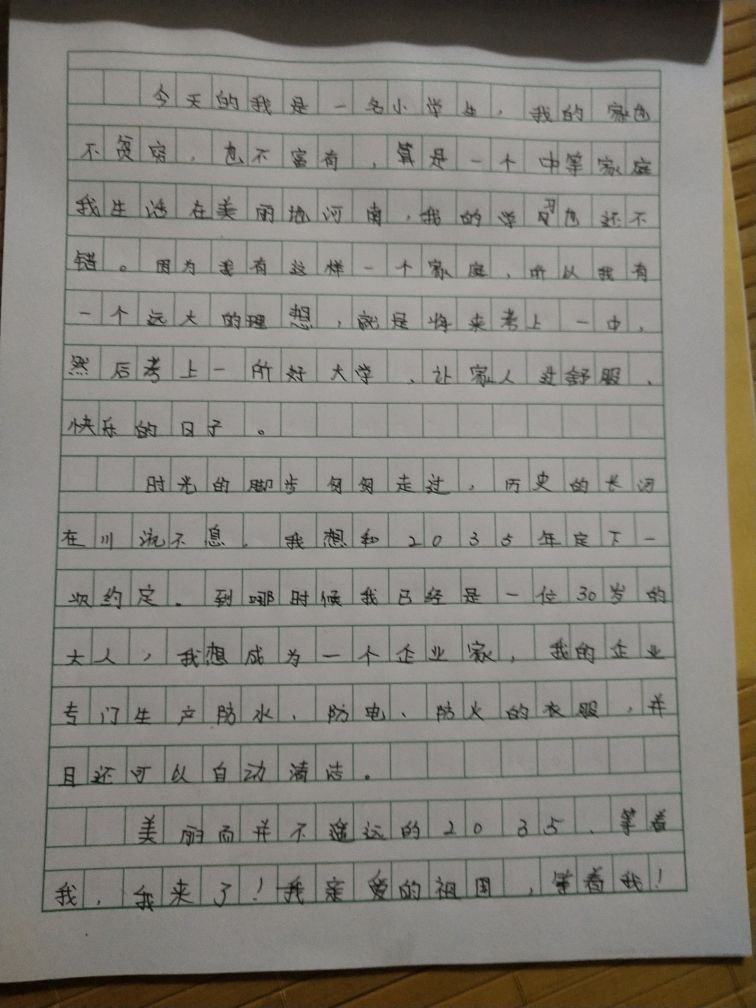 今天的我是一名小学生，我的家也
不贫穷，也不富有，算是一个中等家庭
我生活在美丽地河南，我的学习也还不
错。因为我有这样一个家庭，所以我有
一个远大的理想，就是将来考上一中，
然后考上一所好大学，让家人过舒服、
快乐的日子。
时光的脚步匆匆走过，历史的长河
在川流不息，我想和2035年定下一
次约定。到哪时候我已经是一位30岁的
大人，我想成为一个企业家，我的企业
专门生产防水、防电、防火的衣服，并
且还可以自动清洁。
美丽而并不遥远的2035、等着
我，我来了！我亲爱的祖国，等着我！